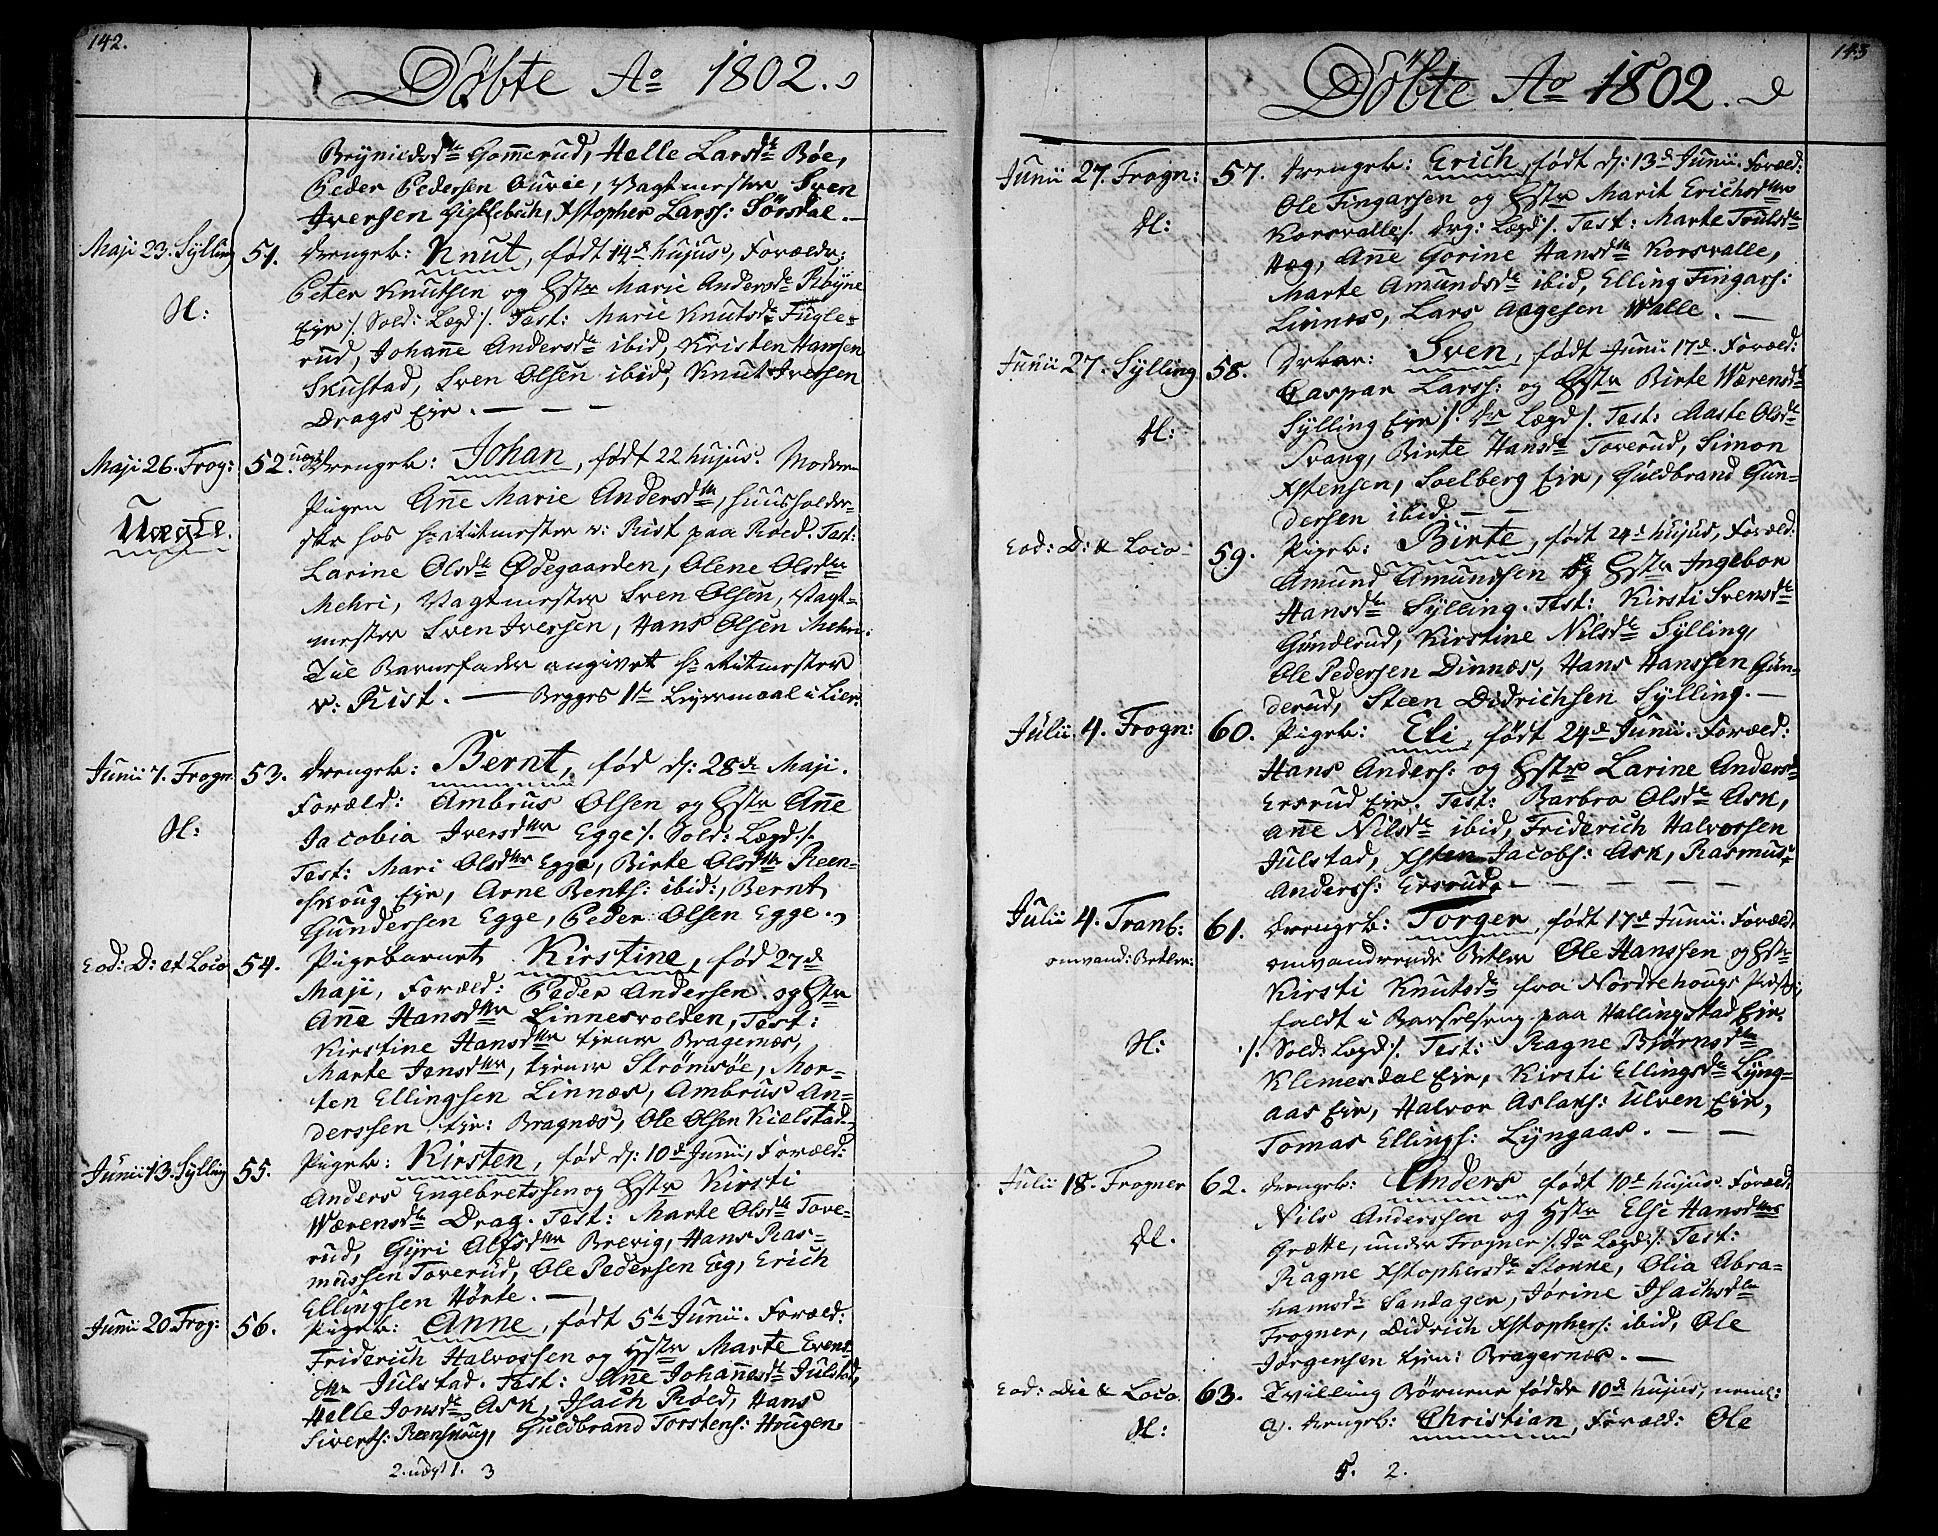 142.
Döbte Ao 1802.
Brynildsdr Gomerud, Helle Larsdr Bøe,
Peder Pedersen Auvie, Vagtmester Sven
Iversen Gistlebech, Xstopher Larss: Sørsdal. —
Maji 23. Sylling 51. Drengeb: Knut, født 14de hujus, Forældr:
Peter Knutsen og Hstr Marie Andersdr Røyne
Sl: Eje /. Sold: Lægd /. Test: Marie Knutsdr Fugle-
rud, Johane Andersdr ibid, Kristen Hansen
Skustad, Sven Olsen ibid, Knut Iversen
Drags Eje. — — —
Maji 26. Frog: 52. uægt Drengeb: Johan, født 22 hujus. Moderen
Pigen Ane Marie Andersdtr, huusholder-
Uægte. ske hos Hr Ritmester v: Kist paa Røed. Test:
Larine Olsdr Ødegaarden, Olene Olsdtr
Mehri, Vagtmester Sven Olsen, Vagt-
mester Sven Iversen, Hans Olsen Mehri.
Til Barnefader angivet Hr Ritmester
v: Kist. — Begges 1te Leyermaal i Lier.
Junii 7. Frogn. 53. Drengeb: Bernt, fød d: 28de Maji.
Foræld: Ambrus Olsen og Hstr Ane
Sl: Jacobia Iversdtr Egge /. Sold: Lægd /.
Test: Mari Olsdtr Egge, Birte Olsdtr Reen-
skoug Eje, Arne Bents: ibid:, Bernt
Gundersen Egge, Peder Olsen Egge.
Eod: D: et Loco 54. Pigebarnet Kirstine, fød 27de
Maji, Foræld: Peder Andersen og Hstr
Ane Hansdtr Linnesvolden, Test:
Kirstine Hansdtr tjener Bragernæs,
Marte Jensdtr, tjener Strømsøe, Mor-
ten Ellingsen Linnæs, Ambrus An-
derssen tje: Bragnæs, Ole Olsen Kielstad.
Junii 13. Sylling 55. Pigeb: Kirsten, fød d: 10de Junii, Foræld:
Anders Engebretssen og Hstr Kirsti
Wærensdr Drag. Test: Marte Olsdr Tove-
rud, Gyri Alfsdtr Brevig, Hans Ras-
mussen Toverud, Ole Pedersen Eg, Erich
Ellingsen Hørte. —
Junii 20 Frog: 56. Pigeb: Anne, født 5te Junii. Foræld:
Friderich Halvorssen og Hstr Marte Evens-
dtr Julstad. Test: Ane Johanesdr Julstad,
Helle Jonsdr Ask, Isach Røed, Hans
Siverts: Reenskoug, Guldbrand Torstens: Hougen.
2. uægt 1. 3
143
Döbte Ao 1802.
Junii 27. Frogn: 57. Drengeb: Erich, født d: 13de Junii. Foræld:
Ole Fingarsen og Hstr Marit Erichsdtr
Dl: Korsvalle /. Drg: Lægd /. Test: Marte Trulsdr
Hæg, Ane Gorine Hansdtr Korsvalle,
Marte Amundsdr ibid, Elling Fingars:
Linnes, Lars Aagesen Walle. —
Junii 27. Sylling 58. Drbar: Sven, født Junii 17de. Foræld:
Caspar Larss: og Hstr Birte Wærensdr
Dl: Sylling Eje /. Dr Lægd /. Test: Aaste Olsdr
Svang, Birte Hansdr Toverud, Simon
Xstensen, Soelberg Eje, Guldbrand Gun-
dersen ibid. — —
Eod: D: & Loco 59. Pigeb: Birte, født 24de hujus, Foræld:
Amund Amundsen og Hstr Ingebor
Hansdr Sylling. Test: Kirsti Svensdr
Gunderud, Kirstine Nilsdr Sylling,
Ole Pedersen Dinnæs, Hans Hanssen Gun-
derud, Steen Didrichsen Sylling. —
Julii 4. Frogn: 60. Pigeb: Eli, født 24de Junii. Foræld:
Hans Anders: og Hstr Larine Andersdr
Ersrud Eje. Test: Barbro Olsdr Ask,
Ane Nilsdr ibid, Friderich Halvorssen
Julstad, Xsten Jacobs: Ask, Rasmus
Anderss: Ersrud. — — — —
Julii 4. Tranb: 61. Drengeb: Torger, født 17de Junii. Foræld.
omvand: Betler: omvandrende Betler Ole Hanssen og Hstr
Kirsti Knutsdr fra Nordrehougs Præstg:
faldt i Barselseng paa Hallingstad Eje.
Sl: ./. Sold: Lægd /. Test: Ragne Biørnsdtr
Klemesdal Eje, Kirsti Ellingsdr Lyng-
aas Eje, Halvor Aslaks: Ulven Eje,
Tomas Ellings: Lyngaas. — —
Julii 18. Frogner 62. Drengeb: Anders født 10de hujus. Foræld.
Nils Anderssen og Hstr Else Hansdtr
Dl. Grætte, under Frogner /. Dr Lægd: /. Test:
Ragne Xstophersdr Stokke, Olia Abra-
hamsdr Sandager, Jørine Isachsdtr
Frogner, Didrich Xstophers: ibid, Ole
Jørgensen tjen: Bragernæs. —
Eod: Die & Loco. 63. Tvilling Börnene fødde 10de hujus, neml:
Sl: a). Drengeb: Christian, Foræld: Ole
5. 2.